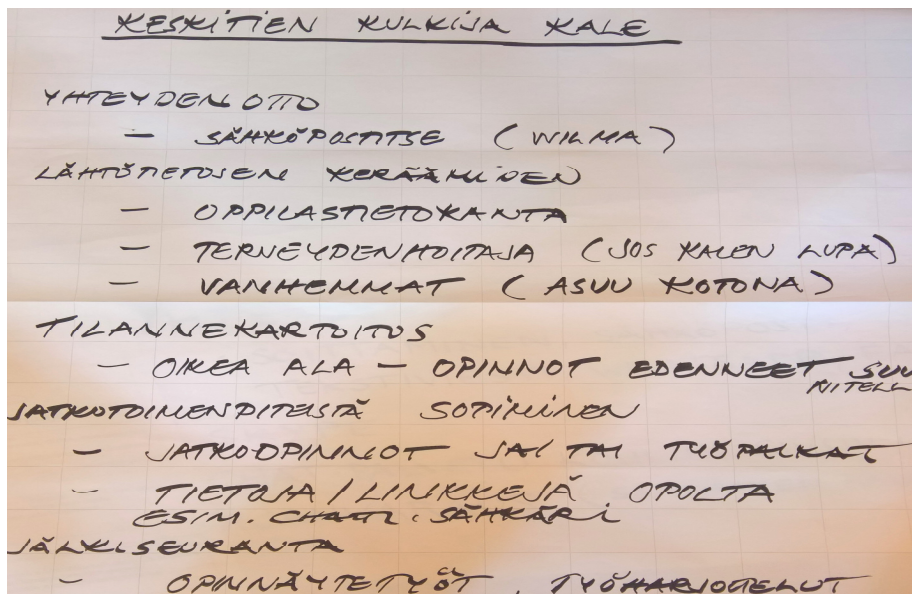 KESKITIEN KULKIJA KALE
YHTEYDENOTTO
- SÄHKÖPOSTITSE (WILMA)
LÄHTÖTIETOJEN KERÄÄMINEN
- OPPILASTIETOKANTA
- TERVEYDENHOITAJA (JOS KALEN LUPA)
- VANHEMMAT (ASUU KOTONA)
TILANNEKARTOITUS
- OIKEA ALA - OPINNOT EDENNEET SUU
NITELL
JATKOTOIMENPITEISTÄ SOPIMINEN
- JATKOOPINNOT JA/TAI TYÖPAIKAT
- TIETOJA/LINKKEJÄ OPOLTA
ESIM. SÄHKÄRI
JÄLKISEURANTA
- OPINNÄYTETYÖT, TYÖHARJOTELUT